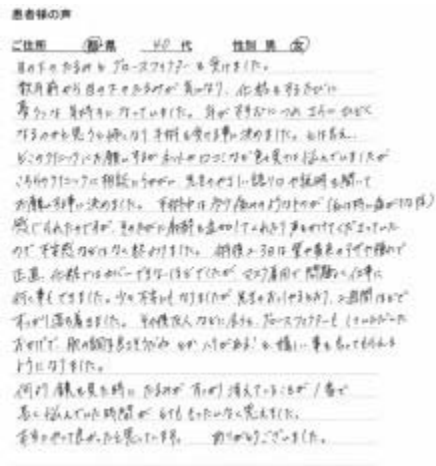 患者様の声
ご住所 都・県 40代 性別 男 女
目の下のたるみとグロースファクターを受けました。
数年前から目の下のたるみが気になり、化粧をするたびに
憂うつな気持ちになっていました。年がすすむにつれさらにひどく
なるのかと思うと怖くなり手術を受ける事に決めました。とは言え、
どこのクリニックにお願いするかネットや口コミなど色々見ては悩んでいましたが
こちらのクリニックに相談にうかがい、先生のやさしい語り口や説明を聞いて
お願いする事に決めました。手術中は
感じられたのですが、そのたびに麻酔を追加してくれたり声もかけてくださっていた
ので不安感などはなく終わりました。術後2~3日は
正直、化粧ではカバーできないほどでしたがマスク着用で問題なく仕事に
行く事もできました。少々不安にもなりましたが先生のおっしゃるとおり、2週間ほどで
すっかり落ち着きました。その後友人などに会うと、グロースファクターも
おかげで、肌の調子良さそうだねとかハリがある!と嬉しい事を言ってもらえる
ようになりました。
何より鏡を見た時にたるみがすっかり消えていることが1番で
長く悩んでいた時間がとてももったいなく思えました。
本当にやって良かったと思っています。 ありがとうございました。